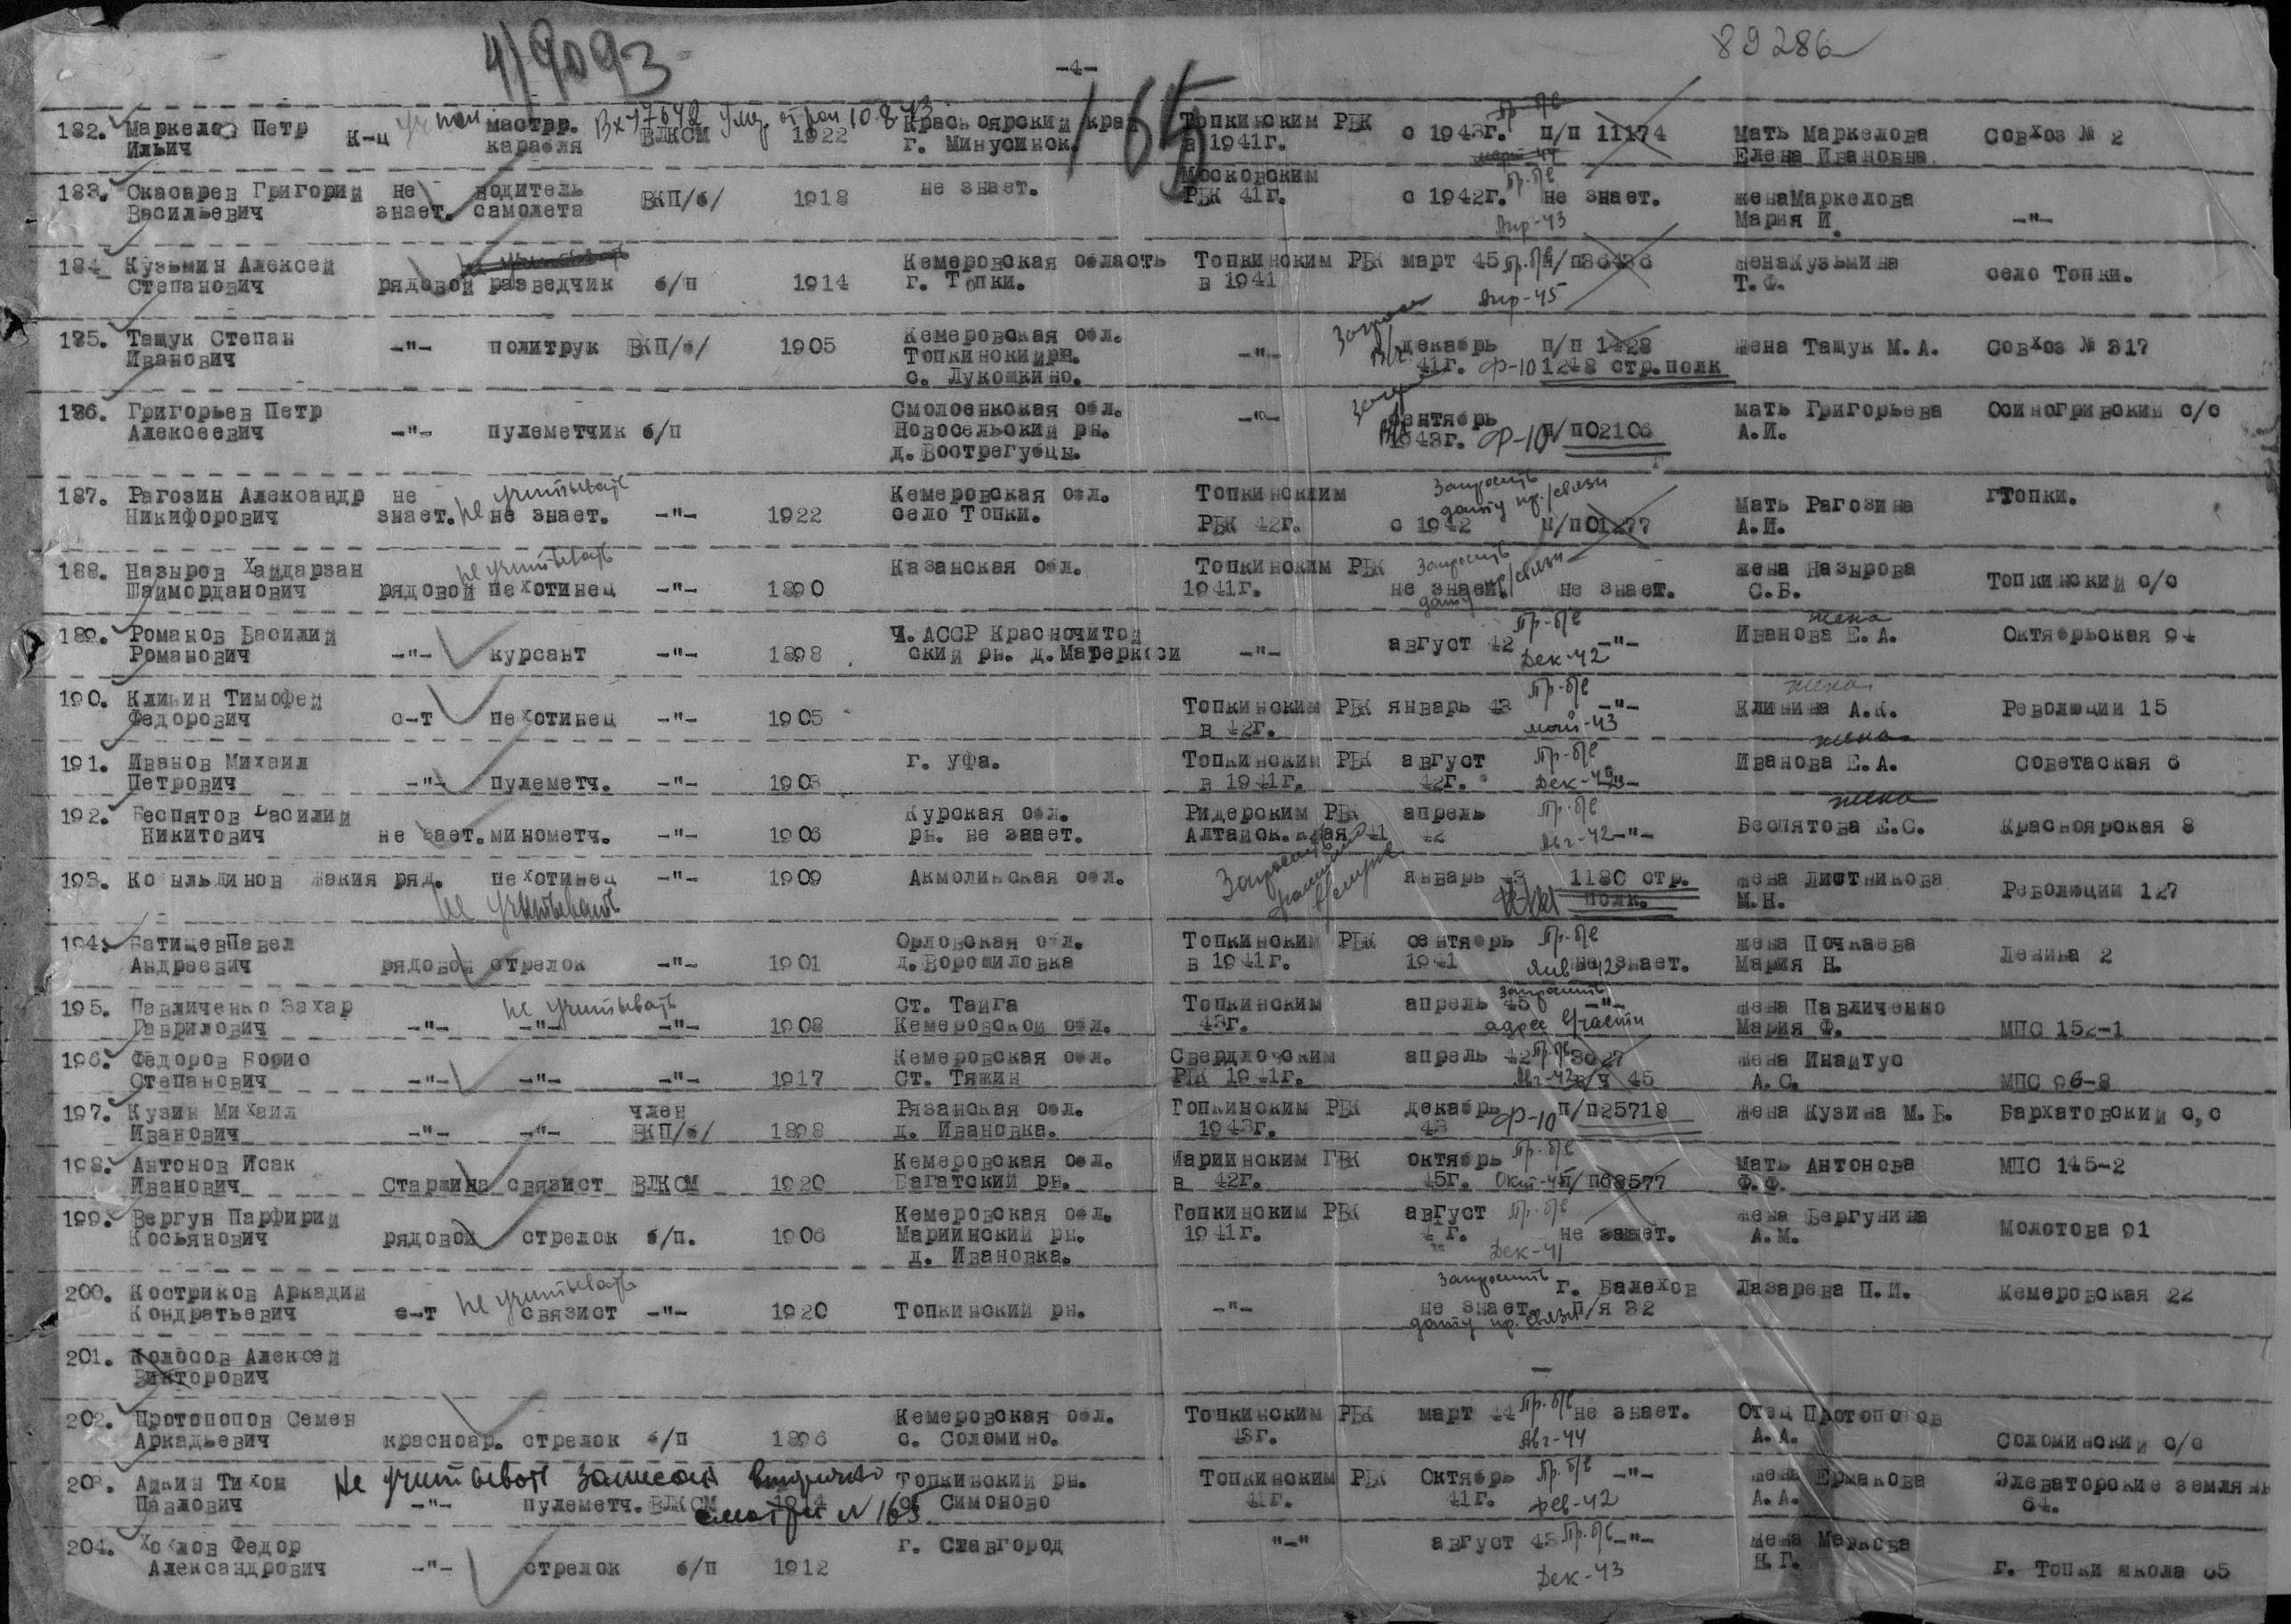 4/9093
89286
-4-
165
182. Маркелов Петр К-ц мастрр. ВЛКСМ 1922 Красноярский края Топкинским РВК с 1943г. п/п 11174 Мать Маркелова Совхоз № 2
Ильич карабля г. Минусинск. в 1941г. Елена Ивановна
183. Скасарев Григорий не водитель ВКП/б/ 1918 не знает. Московским с 1942г. пр-б/в не знает. женаМаркелова -"-
Васильевич знает. самолета РВК 41г. Апр-43 Мария И.
184 Кузьмин Алексей Кемеровская область Топкинским РВК март 45 пр-б/в п/п36436 женаКузьмина село Топки.
Степанович рядовой разведчик б/п 1914 г. Топки. в 1941 Апр-45 Т.Ф.
185. Тащук Степан -"- политрук ВКП/б/ 1905 Кемеровская обл. -"- декабрь п/п 1428 жена Тащук М.А. Совхоз № 317
Иванович Топкинскийрн. 41г. Ф-10 1248 стр.полк
с. Лукошкино.
186. Григорьев Петр Смолоенкская обл. -"- сентябрь мать Григорьева Осиногривский с/с
Алексеевич -"- пулеметчик б/п Новосельский рн. 1943г. Ф-10 п/п02106 А.И.
д.Вострегубцы.
187. Рагозин Александр не не учитывать Кемеровская обл. Топкинскиим Запросить Мать Рагозина гТопки.
Никифорович знает. не знает. -"- 1922 село Топки. РВК 42г. с 1942 дату пр./связи п/п01277 А.И.
188. Назыров Хайдарзан не учитывать Казанская обл. Топкинским РВК Запросить жена Назырова Топкинский с/с
Шайморданович рядовой пехотинец -"- 1890 1941г. не знает дату пр/связи не знает. С.Б.
189. Романов Василий Ч.АССР Красночитой август 42 пр-б/в -"- жена Иванова Е.А. Октябрьская 94
Романович -"- курсант -"- 1898 ский рн. д.Мареркоси -"- Дек-42
190. Клинин Тимофей Топкинским РВК январь 43 пр-б/в -"- жена Клинина А.К. Революции 15
Федорович с-т пехотинец -"- 1905 в 42г. май-43
191. Иванов Михаил г. Уфа. Топкинским РВК август пр-б/в жена Иванова Е.А. Советаская 6
Петрович -"- пулеметч. -"- 1903 в 1941г. 42г. Дек-42 -"-
192. Беспятов Василий Курская обл. Ридерским РВК апрель пр-б/в жена Беспятова Е.С. Красноярская 8
Никитович не знает.минометч. -"- 1906 рн. не знает. Алтайск.края 41 42 Авг-42-"-
193. Ко ыльдинов Закия ряд. пехотинец -"- 1909 Акмолинская обл. январь 43 1180 стр. жена Листникова Революции 127
не учитывать полк. М.Н.
194. БатищевПавел Орловская обл. Топкинским РВК сентябрь пр-б/в жена Почкаева Ленина 2
Андреевич рядовой стрелок -"- 1901 д.Ворошиловка в 1941г. 1941 Янв-42 не знает. Мария Н.
195. Павличенко Захар не учитывать Ст. Тайга Топкинским апрель 45 запросить -"- жена Павличенко
Гаврилович -"- -"- -"- 1908 Кемеровской обл. 43г. адрес в/части Мария Ф. МПС 152-1
196. Федоров Борис Кемеровская обл. Свердловским апрель 42 пр-б/в 3627 жена Инаитус
Степанович -"- -"- -"- 1917 Ст. Тяжин РВК 1941г. Авг-42 в/ч 45 А.С. МПС 96-8
197. Кузин Михаил член Рязанская обл. Топкинским РВК декабрь Ф-10 п/п25718 жена Кузина М.Б. Бархатовский с,с
Иванович -"- -"- ВКП/б/ 1898 д. Ивановка. 1943г. 43
198. Антонов Исак Кемеровская обл. Мариинским ГВК октябрь пр-б/в Мать Антонова МПС 145-2
Иванович Старшина связист ВЛКСМ 1920 Багатский рн. в 42г. 45г. Окт-45 п/п68577 Ф.Ф.
199. Вергун Парфирий Кемеровская обл. Топкинским РВК август пр-б/в жена Вергунина Молотова 91
Косьянович рядовой стрелок б/п. 1906 Мариинский рн. 1941г. г. не знает. А.М.
д. Ивановка. Дек-41
200. Костриков Аркадий не учитывать Запросить г. Балехов Лазарева П.И. Кемеровская 22
Кондратьевич с-т связист -"- 1920 Топкинский рн. -"- не знает. п/я 32
дату пр. связи
201. Колосов Алексей
Викторович
202. Протопопов Семен Кемеровская обл. Топкинским РВК март 44 пр-б/в не знает. Отец Протопопов
Аркадьевич красноар. стрелок б/п 1896 с. Соломино. 43г. Авг-44 А.А. Соломинский с/с
203. Аикин Тихон не учитывать записан вторично Топкинский рн. Топкинским РВК Октябрь пр-б/в -"- жена Ермакова Элеваторские землян
Павлович -"- пулеметч.ВЛКСМ 1914 с. Симоново 41г. 41г. фев-42 А.А. 64.
смотри № 163
204. Хохлов Федор г. Славгород "-" август 43 пр-б/в -"- жена Маркова
Александрович -"- стрелок б/п 1912 Дек-43 Н.Г. г. Топки школа 65